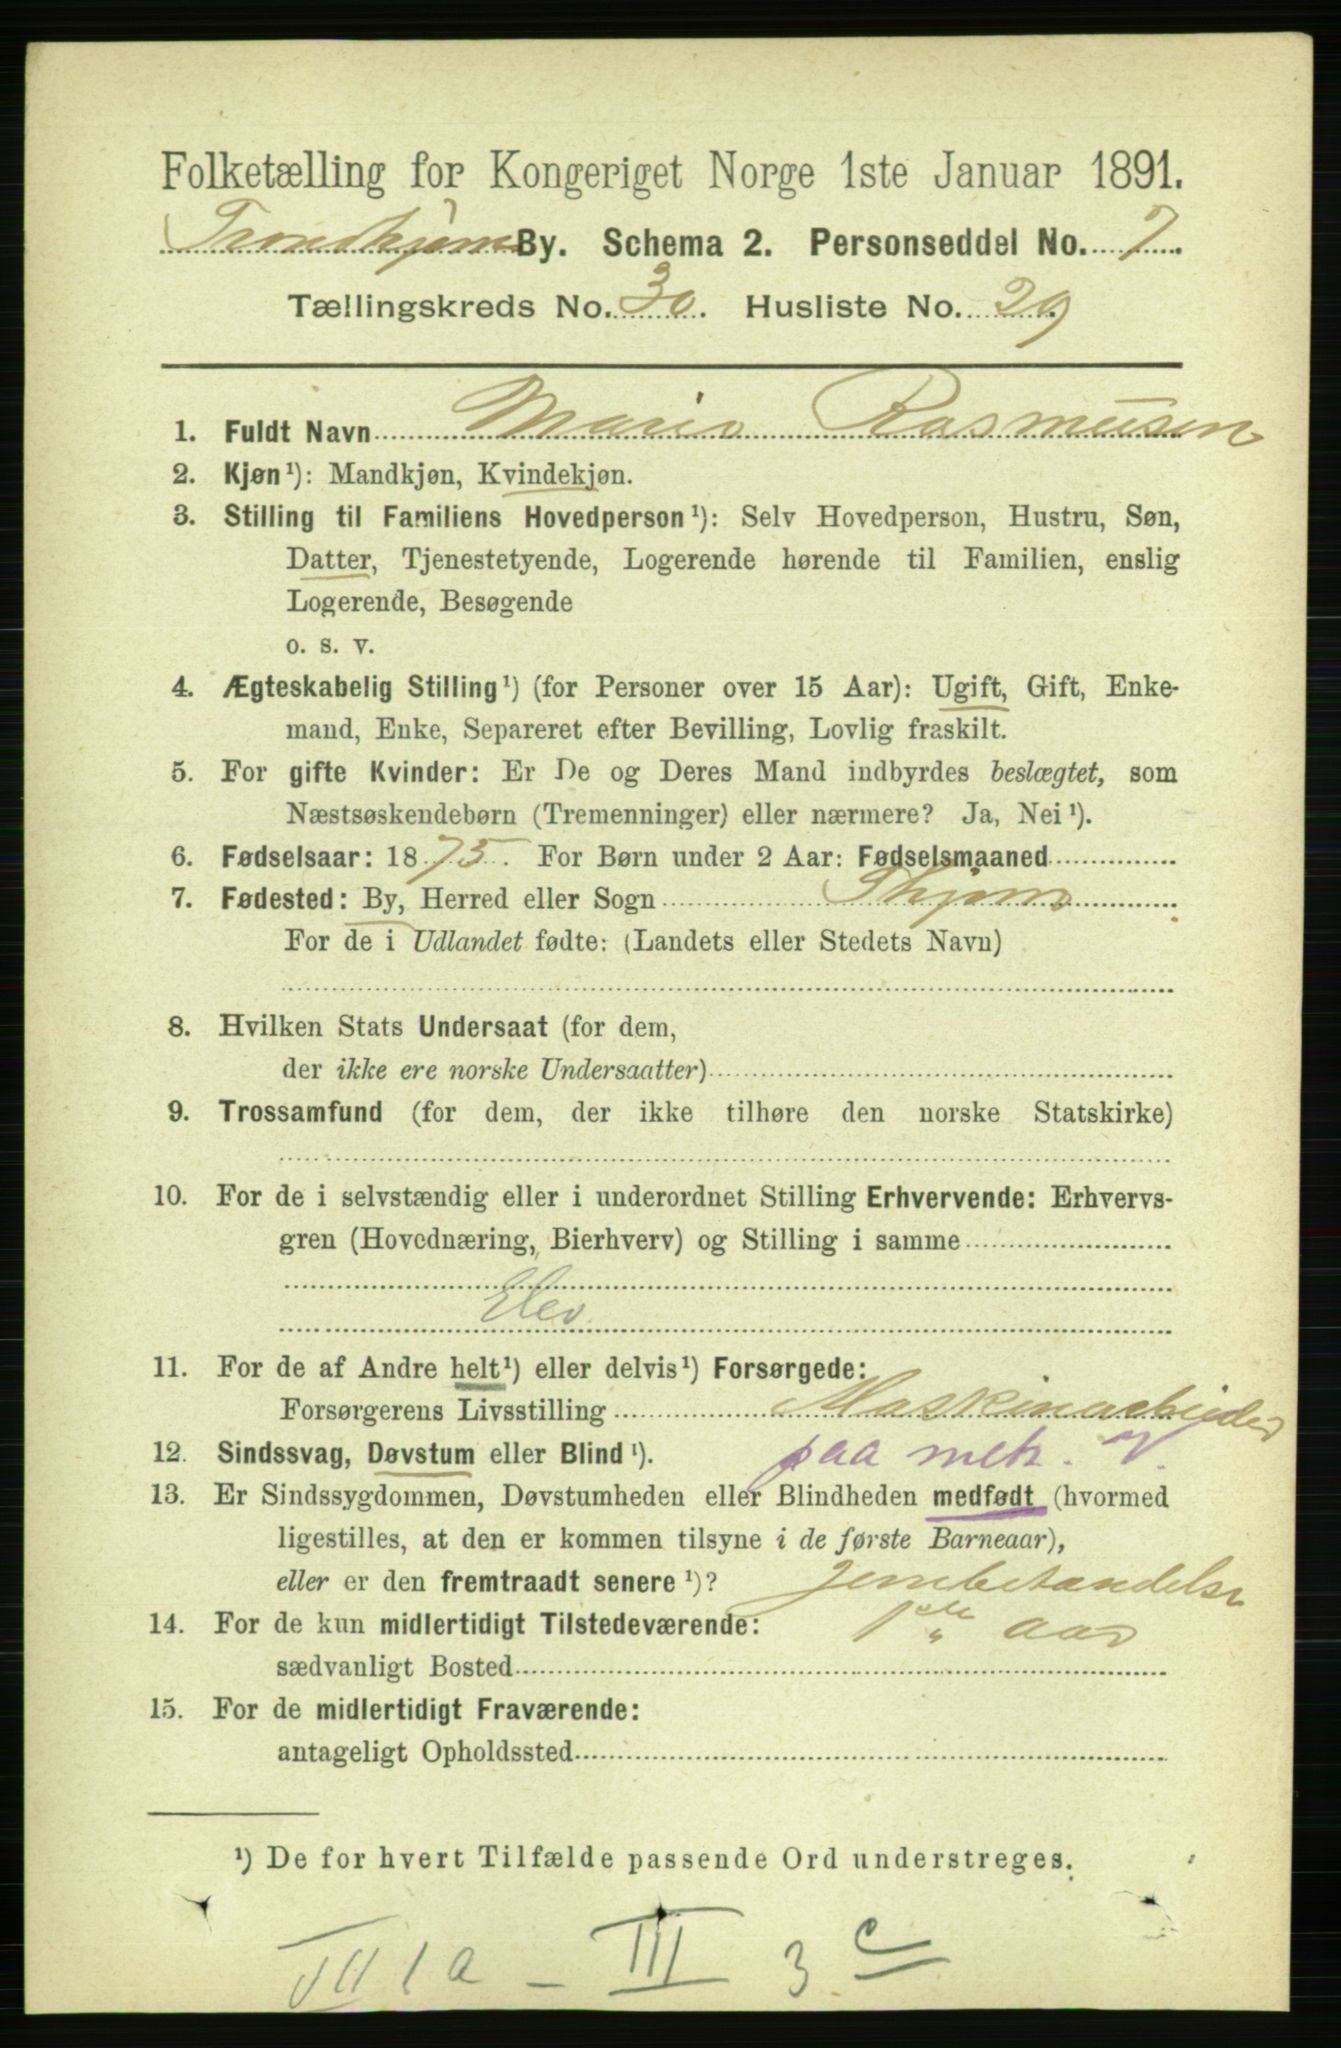 Folketælling for Kongeriget Norge 1ste Januar 1891.
Trondhjems By. Schema 2. Personseddel No. 7.
Tællingskreds No. 30. Husliste No. 29
1. Fuldt Navn Marie Rasmussen
2. Kjøn¹): Mandkjøn, Kvindekjøn.
3. Stilling til Familiens Hovedperson¹): Selv Hovedperson, Hustru, Søn,
Datter, Tjenestetyende, Logerende hørende til Familien, enslig
Logerende, Besøgende
o. s. v.
4. Ægteskabelig Stilling¹) (for Personer over 15 Aar): Ugift, Gift, Enke-
mand, Enke, Separeret efter Bevilling, Lovlig fraskilt.
5. For gifte Kvinder: Er De og Deres Mand indbyrdes beslægtet, som
Næstsøskendebørn (Tremenninger) eller nærmere? Ja, Nei¹).
6. Fødselsaar: 1875. For Børn under 2 Aar: Fødselsmaaned
7. Fødested: By, Herred eller Sogn Thjem
For de i Udlandet fødte: (Landets eller Stedets Navn)
8. Hvilken Stats Undersaat (for dem,
der ikke ere norske Undersaatter)
9. Trossamfund (for dem, der ikke tilhøre den norske Statskirke)
10. For de i selvstændig eller i underordnet Stilling Erhvervende: Erhvervs-
gren (Hovednæring, Bierhverv) og Stilling i samme
Elev
11. For de af Andre helt¹) eller delvis¹) Forsørgede:
Forsørgerens Livsstilling Maskinarbeider
12. Sindssvag, Døvstum eller Blind¹). paa mek. V.
13. Er Sindssygdommen, Døvstumheden eller Blindheden medfødt (hvormed
ligestilles, at den er kommen tilsyne i de første Barneaar),
eller er den fremtraadt senere¹)? Jernebetændelse
1ste aar
14. For de kun midlertidigt Tilstedeværende:
sædvanligt Bosted
15. For de midlertidigt Fraværende:
antageligt Opholdssted
¹) De for hvert Tilfælde passende Ord understreges.
VII 1a – III 3 c